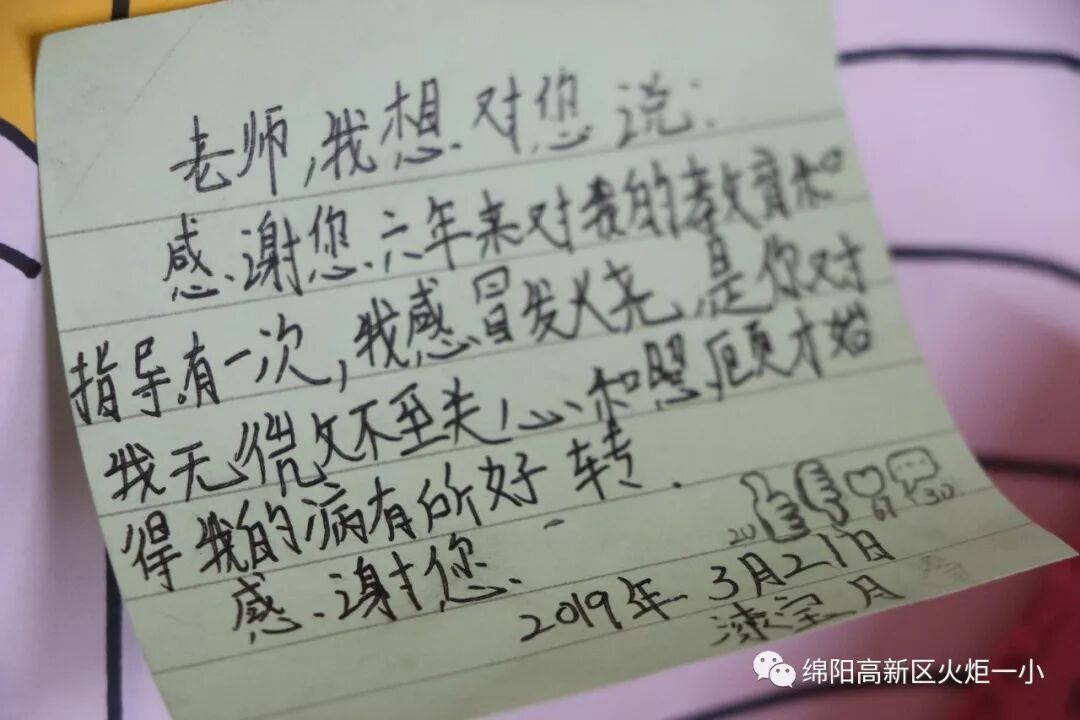 老师,我想对您说:
感谢您六年来对我的教育和
指导.有一次,我感冒发火烧,是你对
我无微不至关心和照顾才始
得我的病有所好转.
感谢您.
20 61 +30
2019年3月21日
绵阳高新区火炬一小